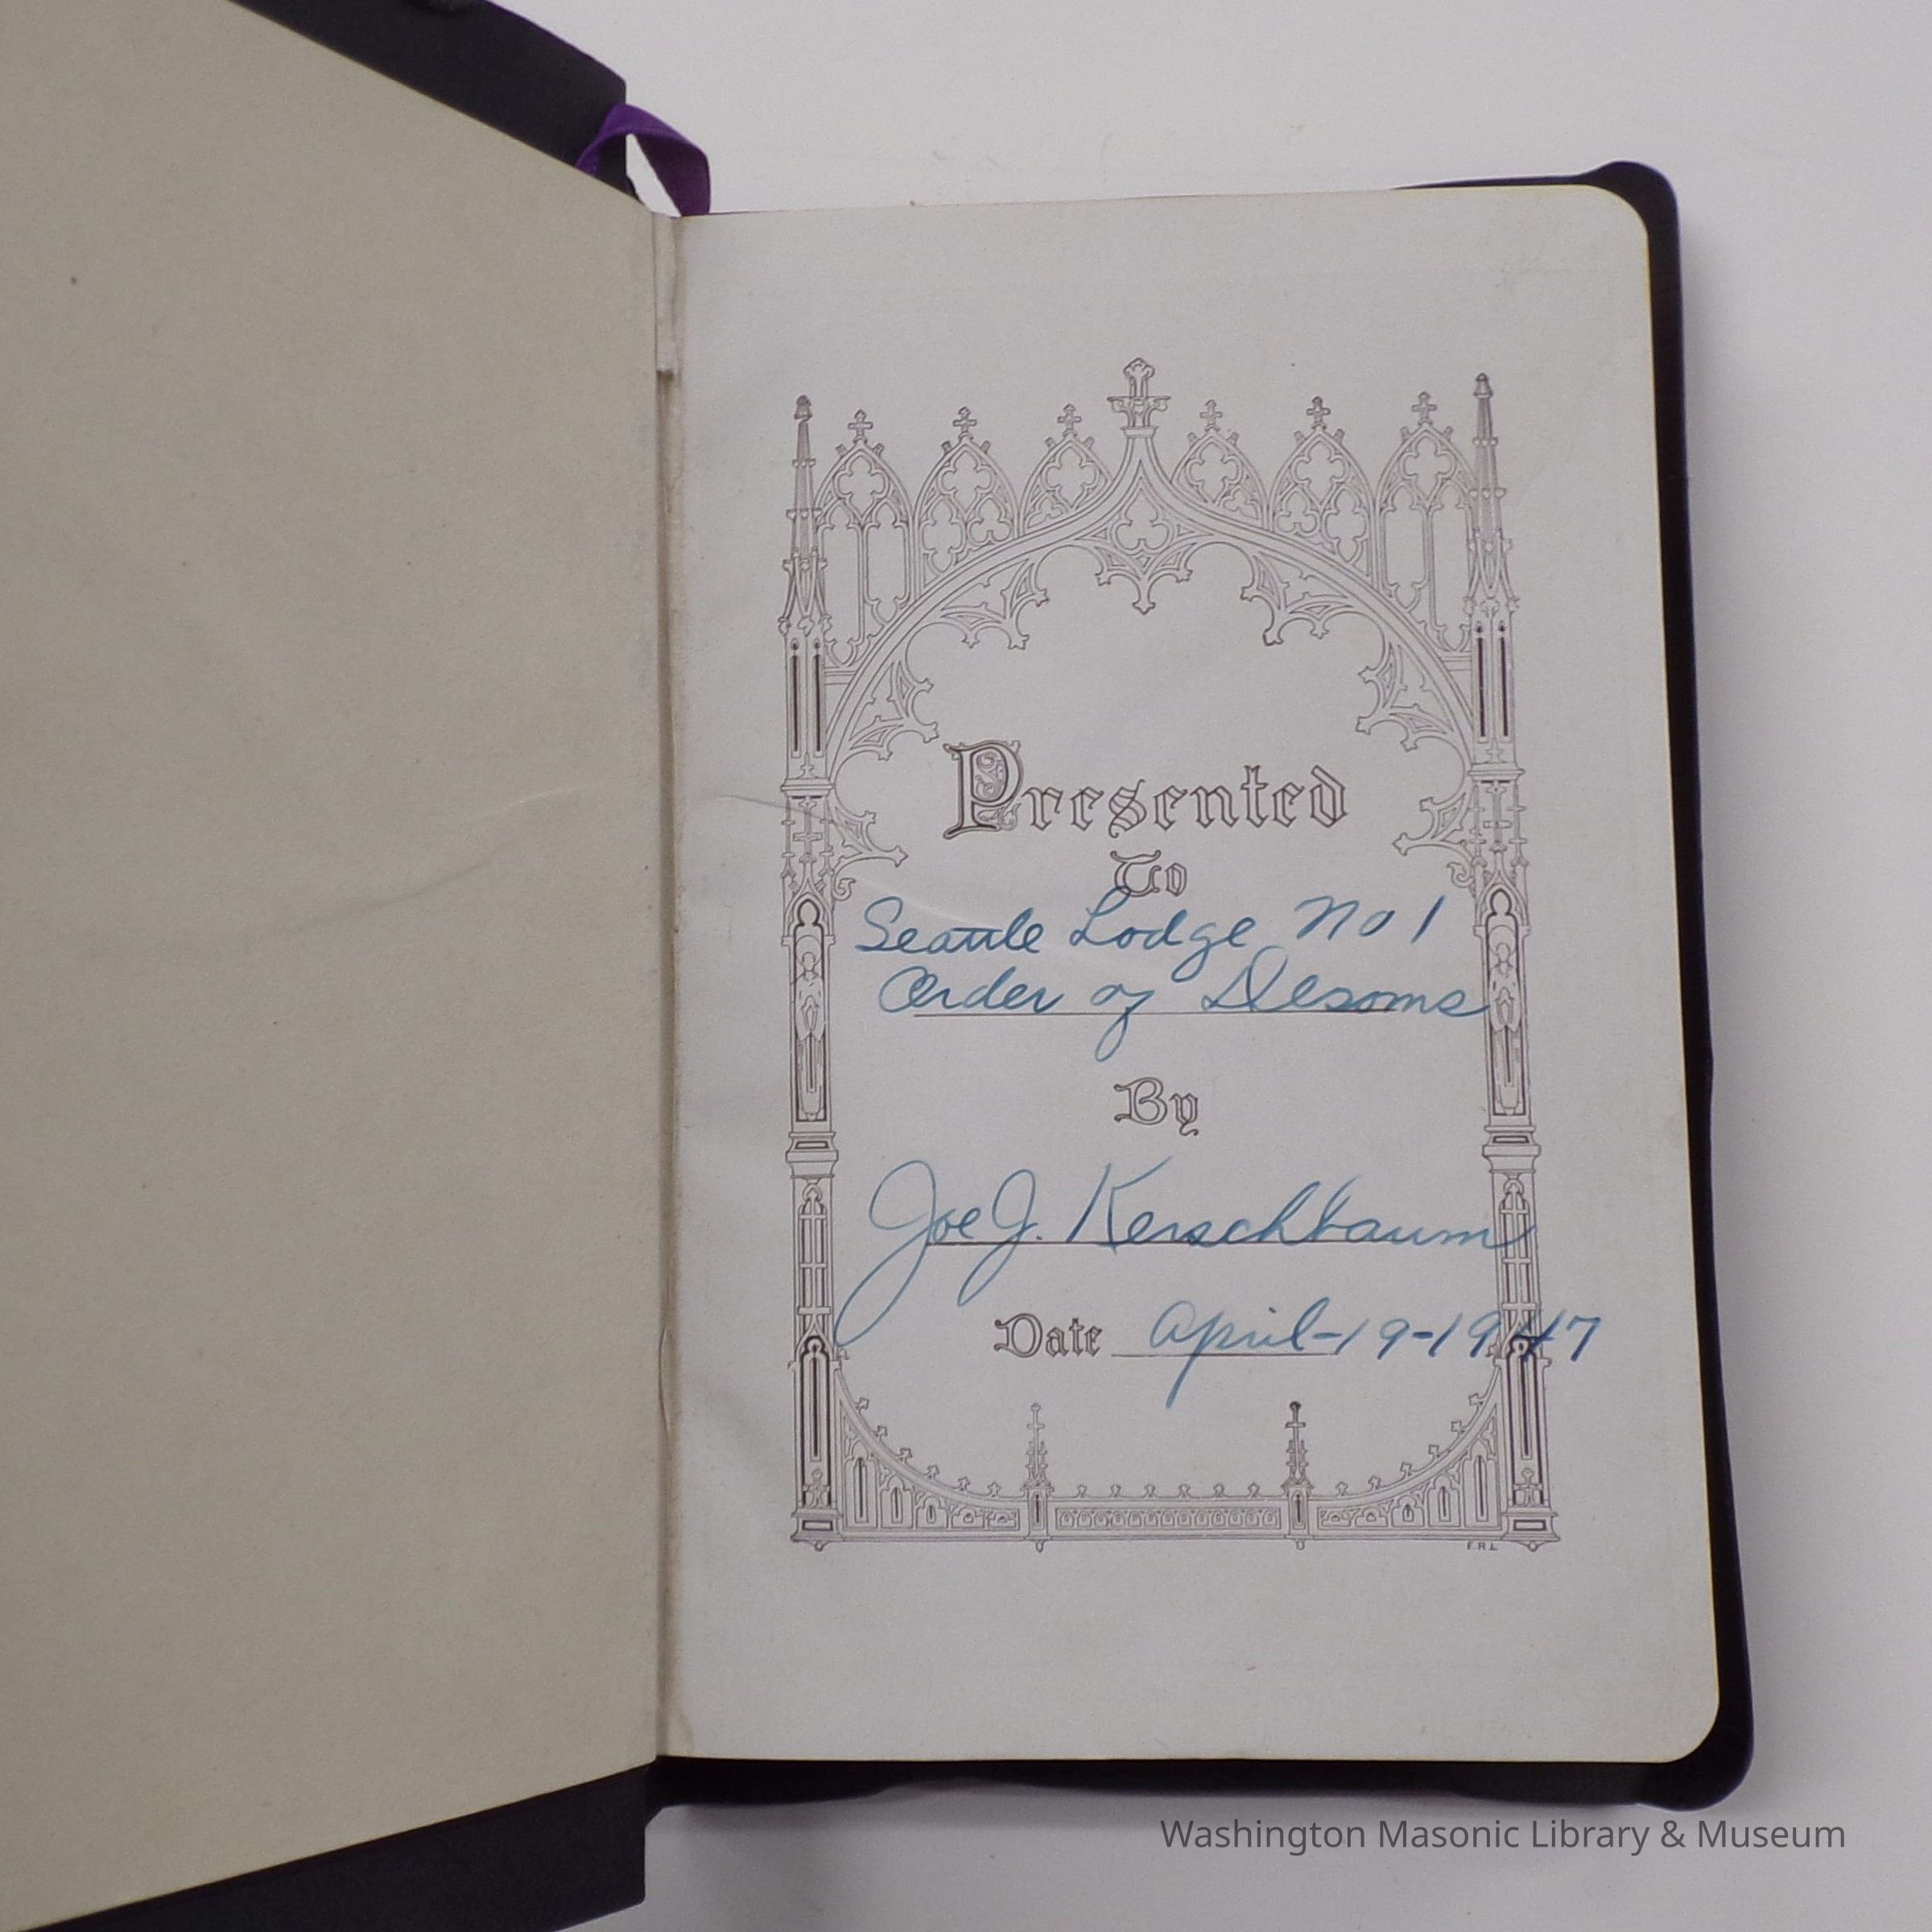 Presented
To
Seattle Lodge No 1
Order of Desoms
By
Joe J. Kerschbaum
Date April-19-1947
F.R.L.
Washington Masonic Library & Museum